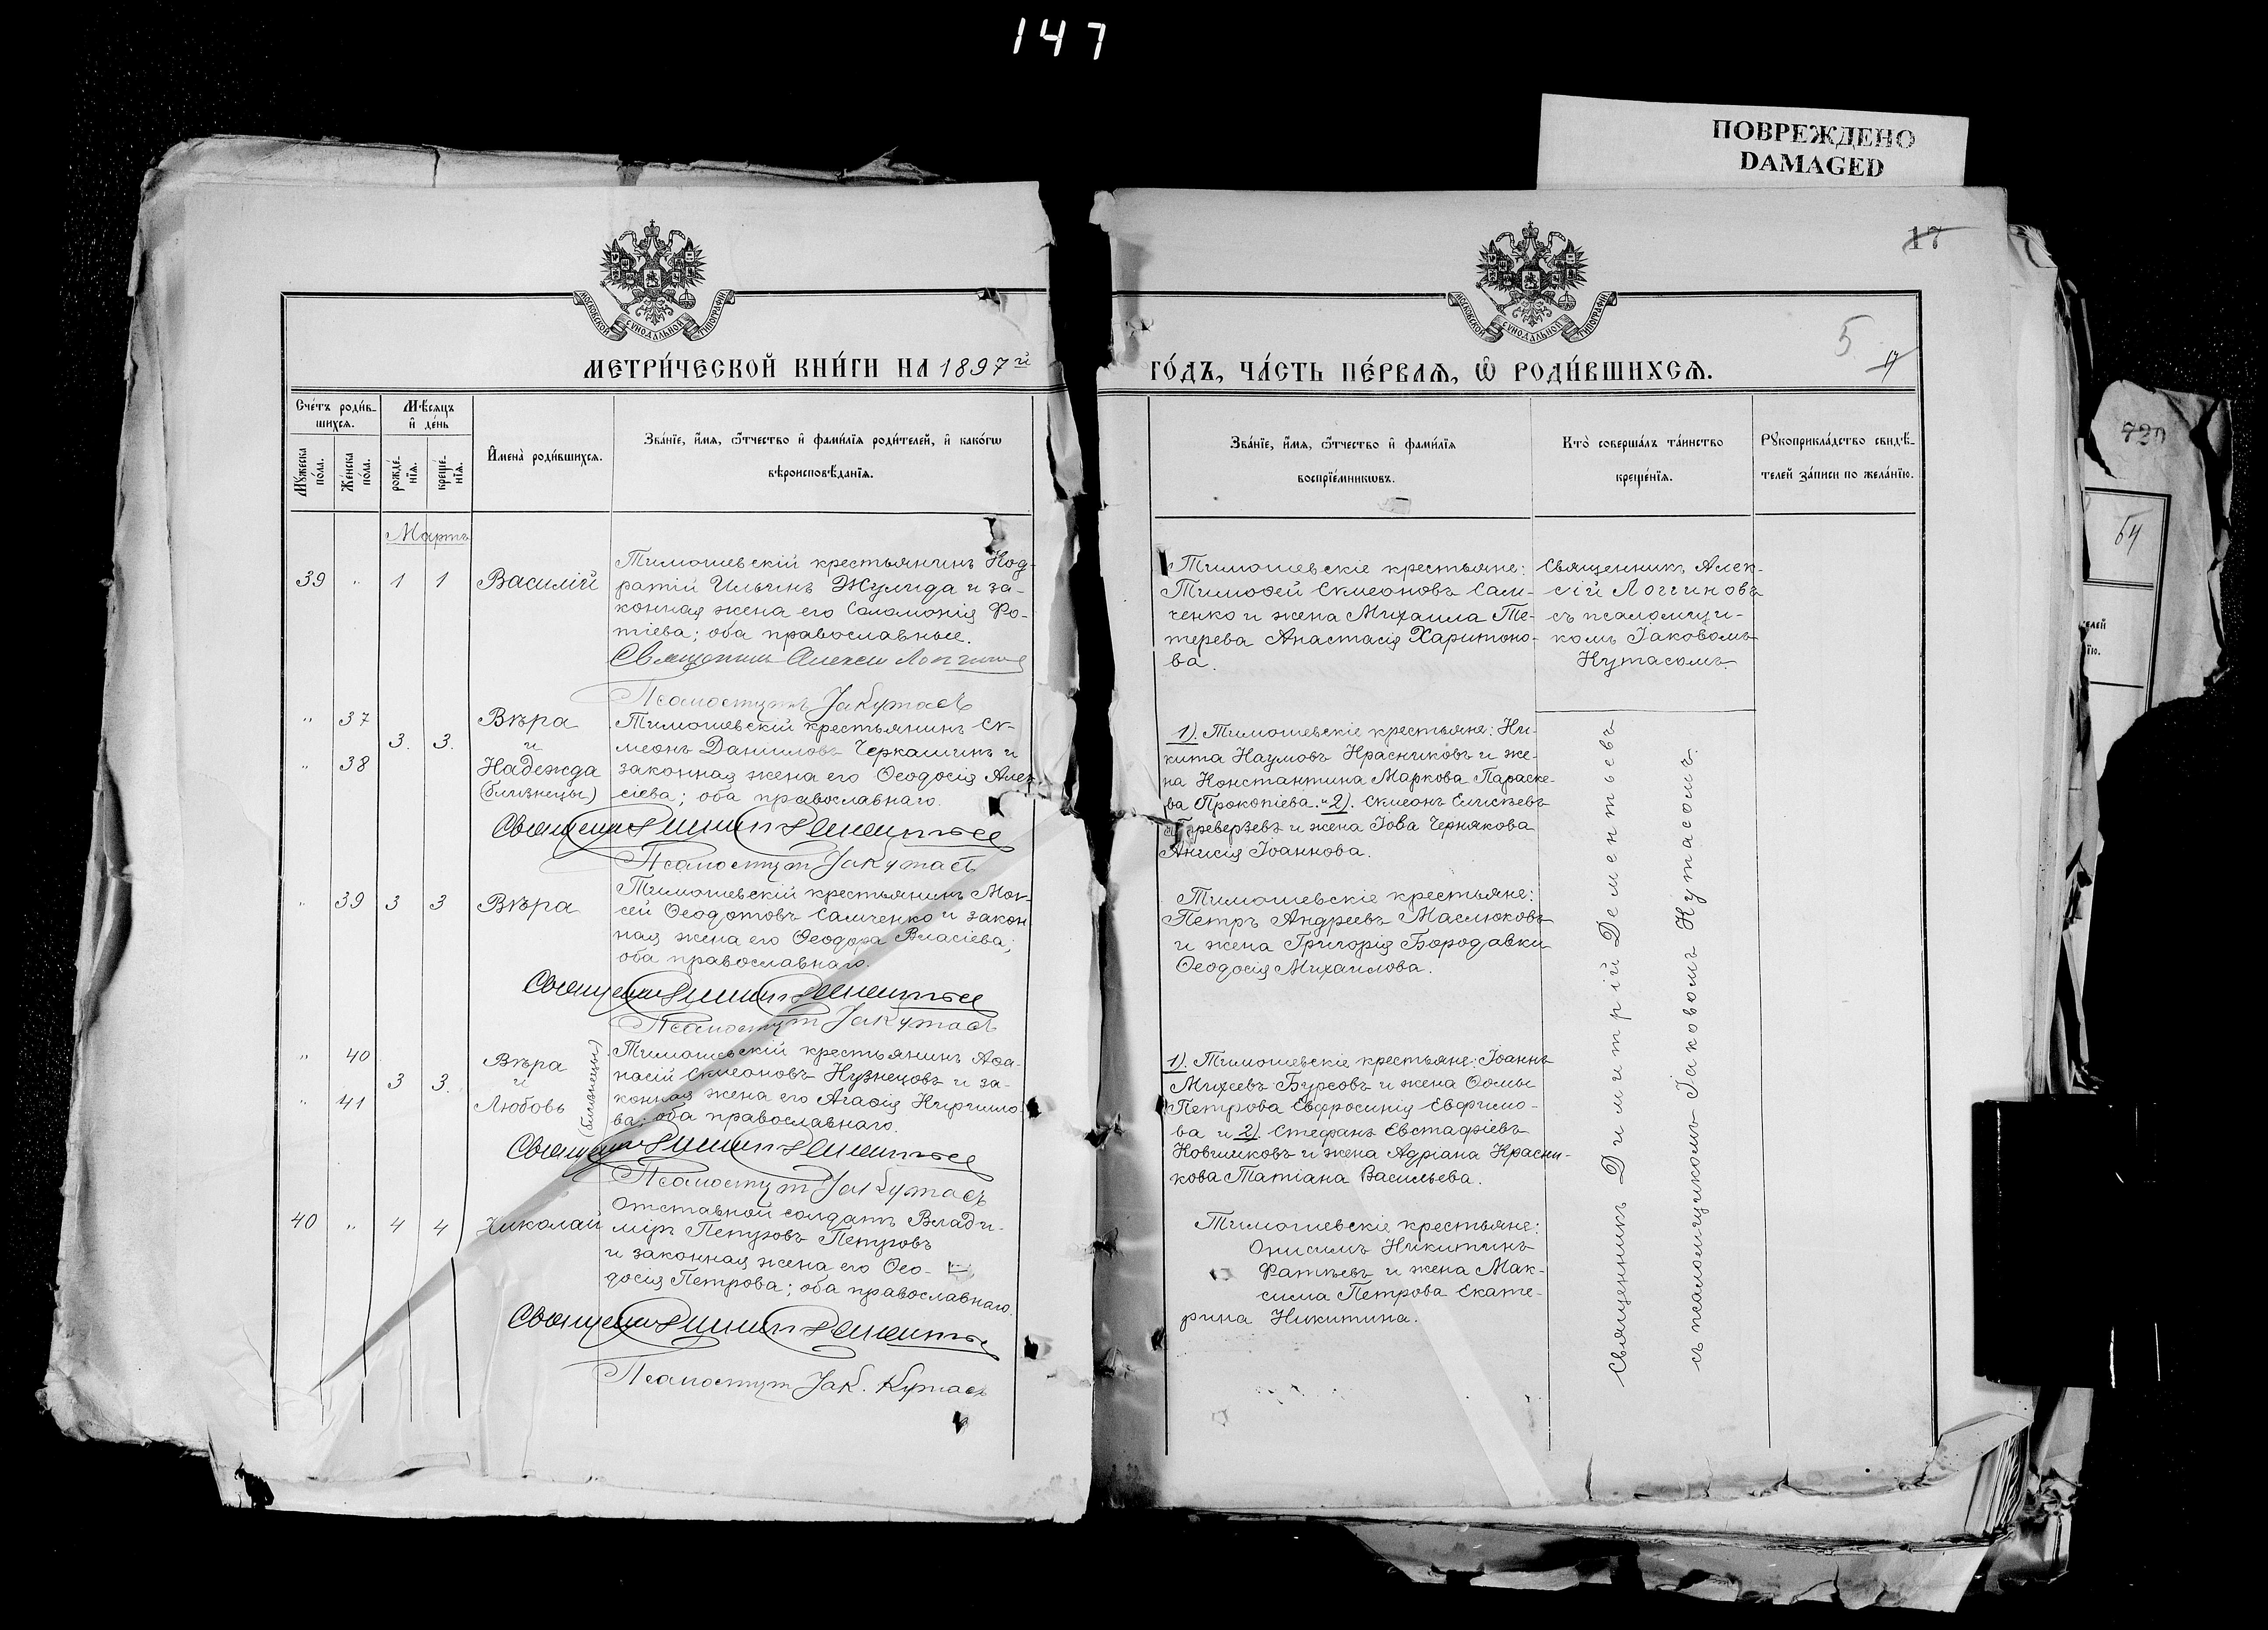 147
ПОВРЕЖДЕНО
DAMAGED
17
МОСКОВСКОЙ СѴНОДАЛЬНОЙ ТИПОГРАФІИ
МОСКОВСКОЙ СѴНОДАЛЬНОЙ ТИПОГРАФІИ
5
17
МЕТРИ́ЧЕСКОЙ КНИ́ГИ НА 1897й
ГО́ДЪ, ЧА́СТЬ ПЕ́РВАѦ, Ѡ҆ РОДИ́ВШИХСѦ.
Сче́тъ роди́в-
шихсѧ.
Мѣсѧцъ
и҆ де́нь
Мꙋ́жеска
по́ла.
Же́нска
по́ла.
рожде́-
нїѧ.
креще́-
нїѧ.
И҆мена̀ роди́вшихсѧ.
Зва́нїе, и҆́мѧ, ѻ҆́тчество и҆ фами́лїѧ роди́телей, и҆ како́гѡ
вѣроисповѣ́данїѧ.
Зва́нїе, и҆́мѧ, ѻ҆́тчество и҆ фами́лїѧ
воспрїе́мникѡвъ.
Кто̀ соверша́лъ та́инство
креще́нїѧ.
Рꙋкоприкла́дство свидѣ́-
телей за́писи по жела́нїю.
Мартъ
39 " 1 1 Василій
Тимошевскій крестьянинъ Код-
ратій Ильинъ Жулида и за-
конная жена его Саломонія Фо-
тіева; оба православные.
Священникъ Алексій Логгиновъ
Псаломщикъ Іак Кутасъ
Тимошевскіе крестьяне:
Тимоѳей Симеоновъ Сам-
ченко и жена Михаила Те-
терева Анастасія Харитоно-
ва.
Священникъ Алек-
сій Логгиновъ
съ псаломщи-
комъ Іаковомъ
Кутасомъ.
" 37
" 38
3. 3.
Вѣра
и
Надежда
(близнецы)
Тимошевскій крестьянинъ Си-
меонъ Даниловъ Черкашинъ и
законная жена его Ѳеодосія Алек-
сіева; оба православнаго.
Священникъ Димитрій Дементьевъ
Псаломщикъ Іак Кутасъ
1). Тимошевскіе крестьяне: Ни-
кита Наумовъ Красниковъ и же-
на Константина Маркова Параске-
ва Прокопіева. и 2). Симеонъ Елисѣевъ
Переверзевъ и жена Іова Чернякова
Анисія Іоаннова.
" 39 3 3 Вѣра
Тимошевскій крестьянинъ Мои-
сей Ѳеодотовъ Самченко и закон
ная жена его Ѳеодора Власіева;
оба православнаго.
Священникъ Димитрій Дементьевъ
Псаломщикъ Іак Кутасъ
Тимошевскіе крестьяне:
Петръ Андреевъ Маслюковъ
и жена Григорія Бородавки
Ѳеодосія Михаилова.
" 40
" 41
3 3.
Вѣра
и
Любовь
(близнецы)
Тимошевскій крестьянинъ Аѳа-
насій Симеоновъ Кузнецовъ и за-
конная жена его Агаѳія Кирилло-
ва; оба православнаго.
Священникъ Димитрій Дементьевъ
Псаломщикъ Іак Кутасъ
1). Тимошевскіе крестьяне: Іоаннъ
Михеевъ Бурсовъ и жена Ѳомы
Петрова Евфросинія Евфимо-
ва и 2). Стефанъ Евстафіевъ
Ковшиковъ и жена Адріана Красни-
кова Татіана Васильева.
40 " 4 4 Николай
Отставной солдатъ Влади-
міръ Петровъ Петровъ
и законная жена его Ѳео-
досія Петрова; оба православнаго.
Священникъ Димитрій Дементьевъ
Псаломщикъ Іак. Кутасъ
Тимошевскіе крестьяне:
Онисимъ Никитинъ
Фатѣевъ и жена Мак-
сима Петрова Екате-
рина Никитина.
Священникъ Димитрій Дементьевъ
съ псаломщикомъ Іаковомъ Кутасомъ.
720
64
телей
їю.